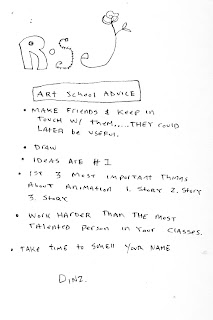 Rose
ART SCHOOL ADVICE
• MAKE FRIENDS & KEEP IN
TOUCH W/ THEM.....THEY COULD
LATER BE USEFUL.
• DRAW
• IDEAS ARE #1
• 1ST 3 MOST IMPORTANT THINGS
ABOUT ANIMATION 1. STORY 2. STORY
3. STORY
• WORK HARDER THAN THE MOST
TALENTED PERSON IN YOUR CLASSES.
• TAKE TIME TO SMELL YOUR NAME